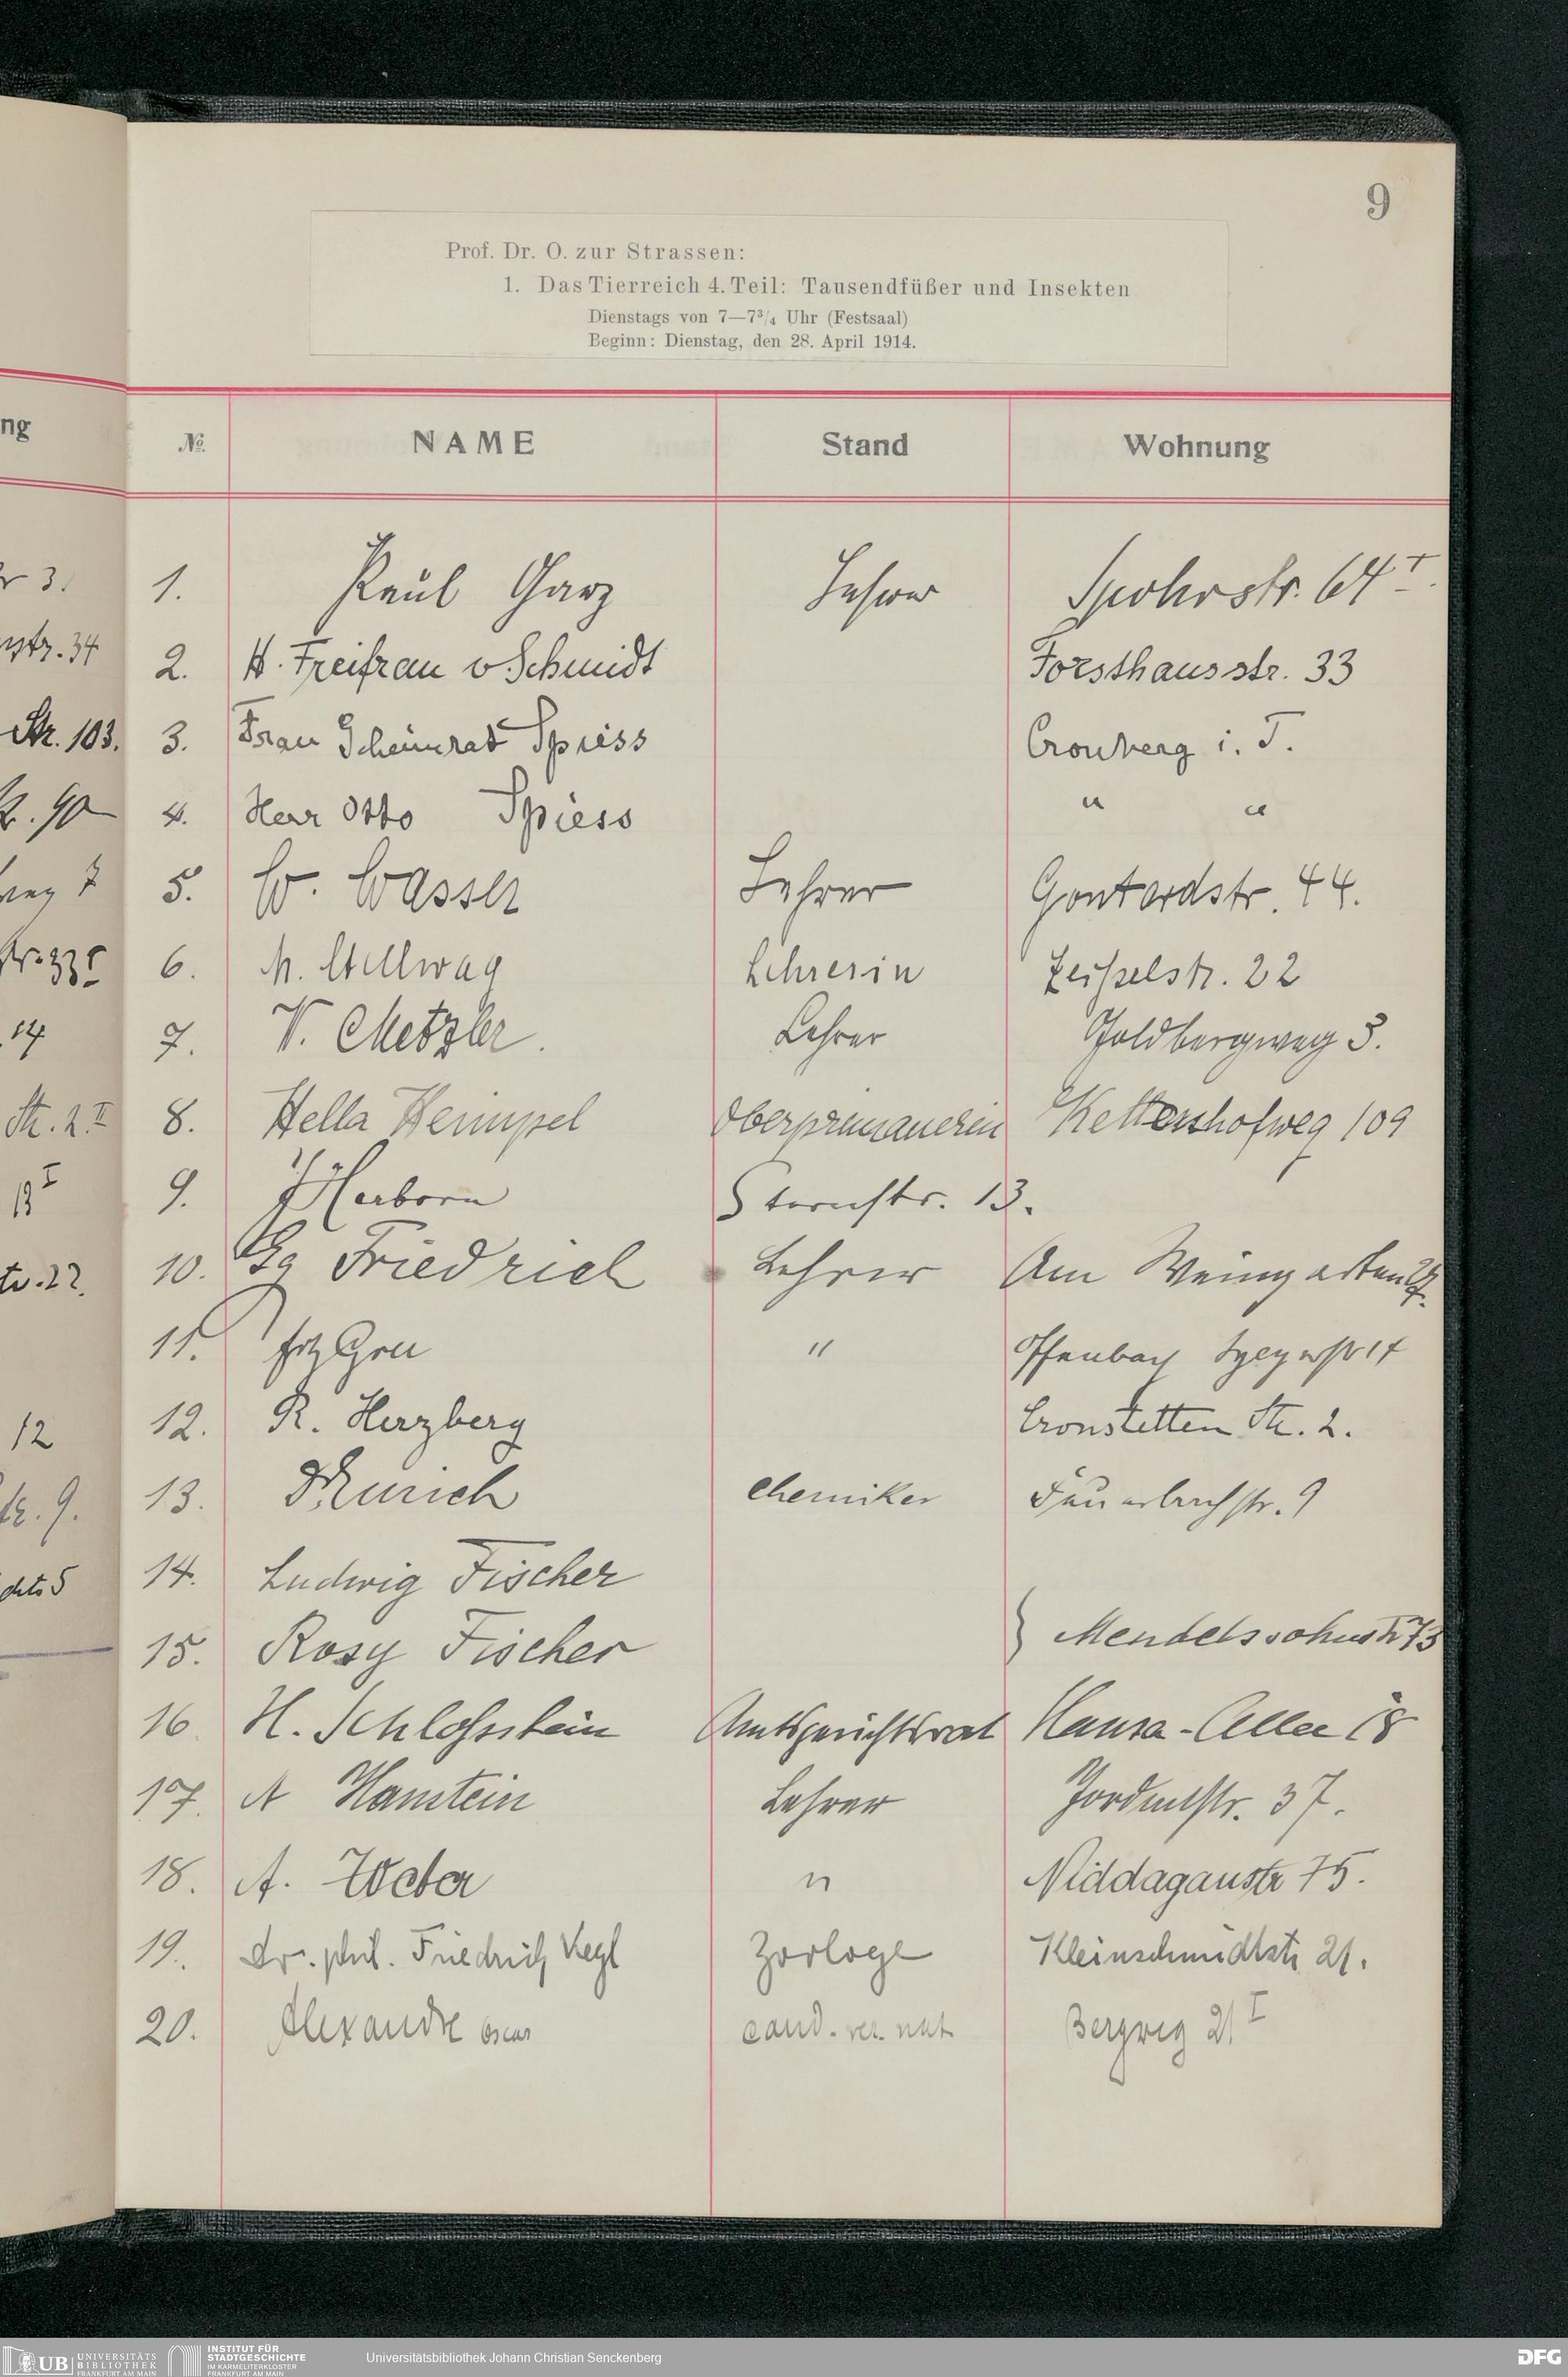 9
Prof. Dr. O. zur Strassen:
1. Das Tierreich 4. Teil: Tausendfüßer und Insekten
Dienstags von 7—7³/₄ Uhr (Festsaal)
Beginn: Dienstag, den 28. April 1914.
ng
№ NAME Stand Wohnung
1. Paul Garz Lehrer Spohrstr. 64 I.
2. Freifrau v Schmidt Forsthausstr. 33
Str. 103. 3. Frau Geheimrat Spiess Cronberg i. T.
4. Herr Otto Spiess " "
5. W. Wasser Lehrer Gontardstr. 44.
6. M. Stellwag Lehrerin Zeisselstr. 22
14 7. V. Metzler. Lehrer Goldbergweg 3.
Str. 2 II 8. Hella Heimpel Oberprimanerin Kettenhofweg 109
9. Herborn Sternstr. 13.
10. Gg Friedrich Lehrer Am Weingarten
11. " Offenbach
12 12. R. Herzberg Cronstetten Str. 2.
13. Chemiker Feuerbachstr. 9
14. Ludwig Fischer
15. Rosy Fischer } Mendelssohnstr 73
16 H. Schloßstein Amtsgerichtsrat Hansa-Allee 18
17. A Hanstein Lehrer Jordanstr. 37.
18. A. Weber " Niddagaustr 75.
19. Dr. phil. Friedrich Zoologe Kleinschmidtstr 21.
20. Alexander Oscar cand. rer. nat. Bergweg 21 I
UB UNIVERSITÄTS BIBLIOTHEK FRANKFURT AM MAIN
INSTITUT FÜR STADTGESCHICHTE IM KARMELITERKLOSTER FRANKFURT AM MAIN
Universitätsbibliothek Johann Christian Senckenberg
DFG